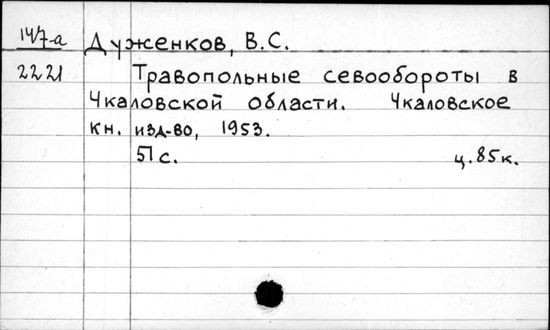 147-а Дуженков, В.С.
2221 Травопольные севообороты в
Чкаловской области. Чкаловское
кн. изд-во, 1953.
51 с. ц. 85 к.